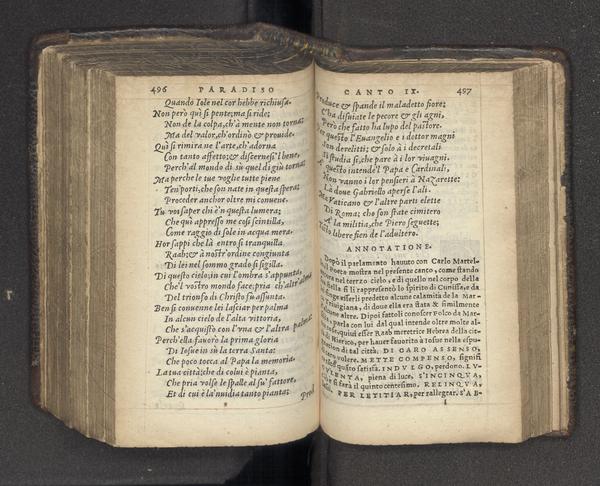 496 PARADISO
Quando Iole nel cor hebbe richiusa.
Non però quì si pente; ma si ride;
Non de la colpa, ch'à mente non torna;
Ma del valor, ch'ordinò & prouide.
Quì si rimira ne l'arte, ch'adorna
Con tanto affetto; & discernesi 'l bene,
Perch'al mondo di sù quel di giù torna:
Ma perche le tue voglie tutte piene
Ten porti, che son nate in questa spera;
Proceder anchor oltre mi conuene.
Tu voi saper chi è 'n questa lumera;
Che quì appresso me così scintilla,
Come raggio di sole in acqua mera.
Hor sappi che là entro si tranquilla
Raab; & à nostr'ordine congiunta
Di lei nel sommo grado si sigilla.
Di questo cielo; in cui l'ombra s'appunta,
Che'l vostro mondo face; pria ch'altr'alma
Del triomfo di Christo fu assunta.
Ben si conuenne lei lasciar per palma
In alcun cielo de l'alta vittoria,
Che s'acquistò con l'vna & l'altra palma:
Perch'ella fauorò la prima gloria
Di Iosue in sù la terra Santa:
Che poco tocca al Papa la memoria.
La tua città; che di colui è pianta,
Che pria volse le spalle al su' fattore,
Et di cui è la 'nuidia tanto pianta:
Prod
CANTO IX. 497
Produce & spande il maladetto fiore;
C'ha disuiate le pecore & gli agni,
Però che fatto ha lupo del pastore.
Per questo l'Euangelio e i dottor magni
Son derelitti; & solo à i decretali
Si studia sì, che pare à i lor viuagni.
A questo intende'l Papa e Cardinali,
Non vanno i lor pensieri à Nazarette:
Là doue Gabriello aperse l'ali.
Ma Vaticano & l'altre parti elette
Di Roma; che son state cimitero
A la militia, che Piero seguette;
Tosto libere fien de l'adultero.
ANNOTATIONE.
Dopo il parlamento hauuto con Carlo Martel-
Poeta mostra nel presente canto, come stando
nel terzo cielo, e di quello nel corpo della
stella sì li rappresentò lo spirito di Cunissa, e da
esserli predetto alcune calamità de la Mar-
Triuigiana, di doue ella era stata & similmente
alcune altre. Dipoi fattoli conoscer Folco da Mar-
parla con lui dal qual intende oltre molte al-
cose, quiui esser Raab meretrice Hebrea della cit-
Hierico, per hauer fauorito à Iosue nella espu-
di tal città. DI CARO ASSENSO,
caro volere. METTE COMPENSO, signifi
questo satisfà. INDVLGO, perdono. LV-
CVLENTA, piena di luce. S'INCINQVA,
e si farà il quinto centesimo. RELINQVA,
PER LETITIAR, per rallegrar. S'AB-